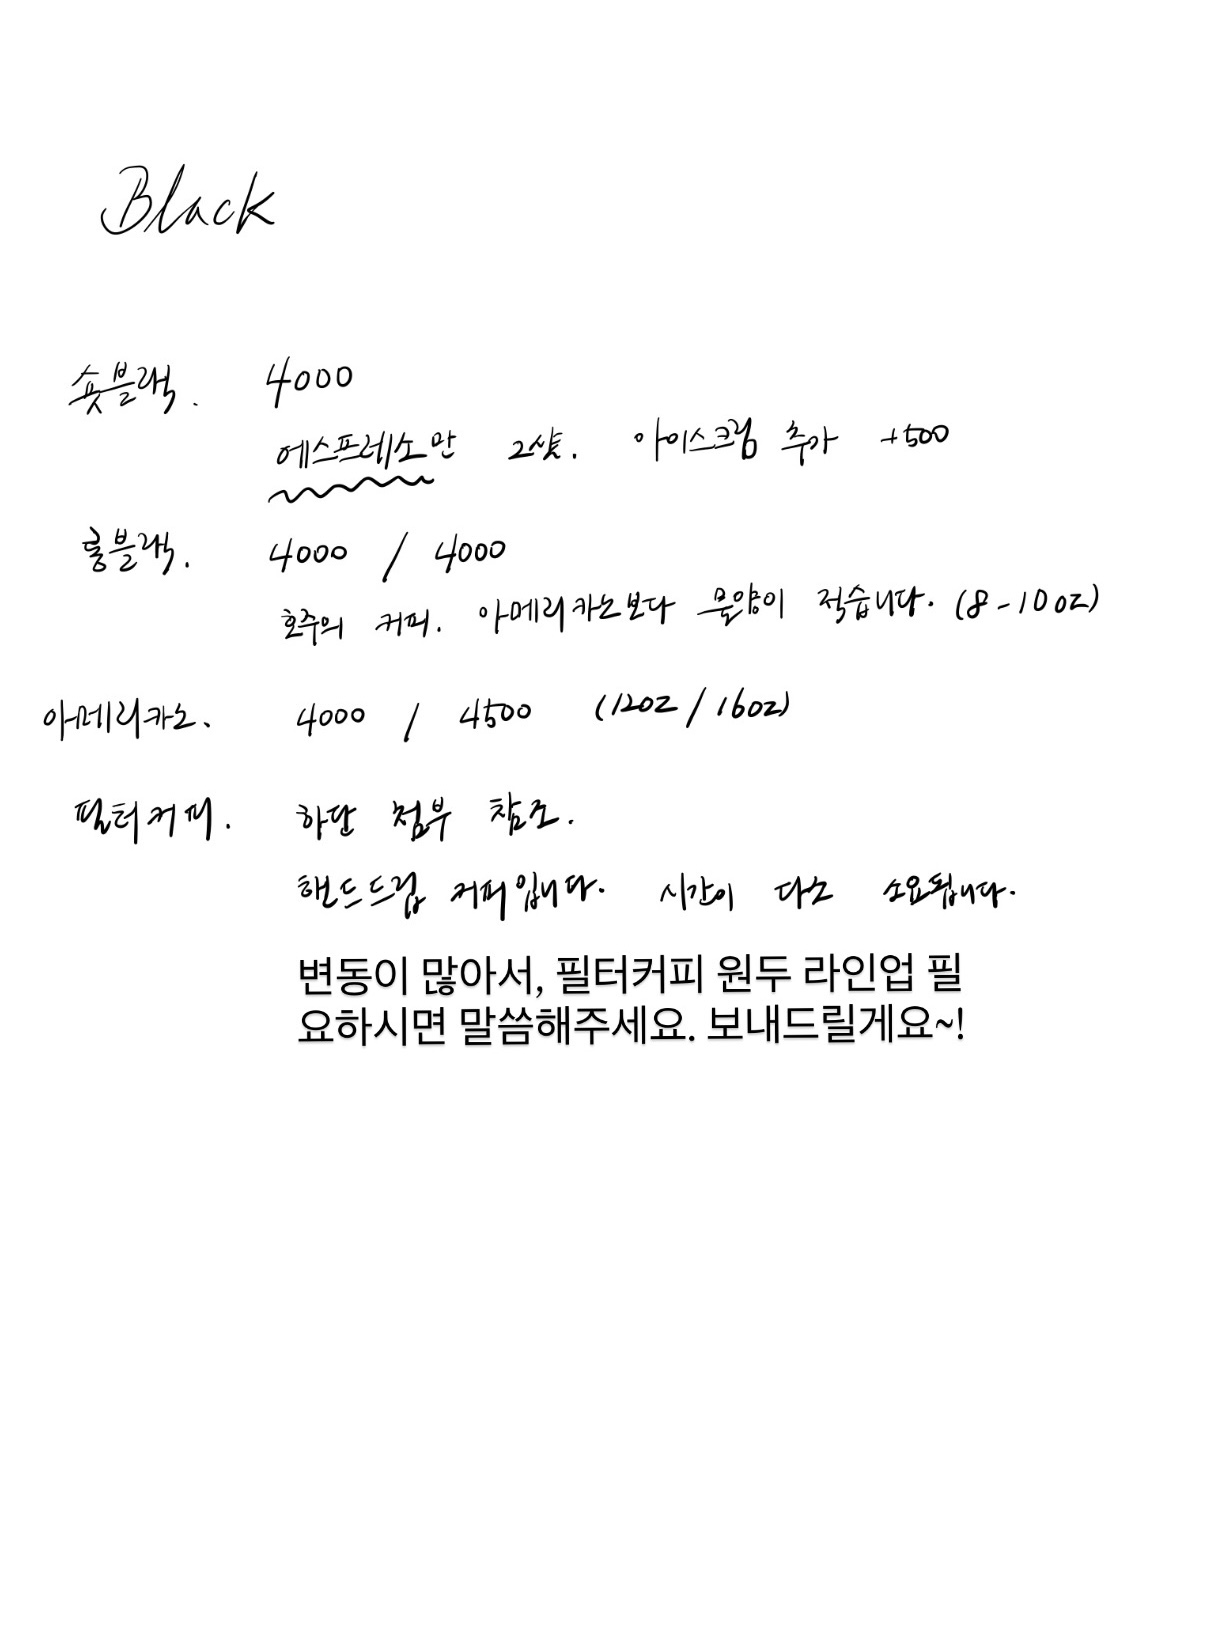 Black
숏블랙. 4000
에스프레소만 2샷. 아이스크림 추가 +500
롱블랙. 4000 / 4000
호주의 커피. 아메리카노보다 물양이 적습니다. (8-10oz)
아메리카노. 4000 / 4500 (12oz / 16oz)
필터커피. 하단 첨부 참조.
핸드드립 커피입니다. 시간이 다소 소요됩니다.
변동이 많아서, 필터커피 원두 라인업 필
요하시면 말씀해주세요. 보내드릴게요~!